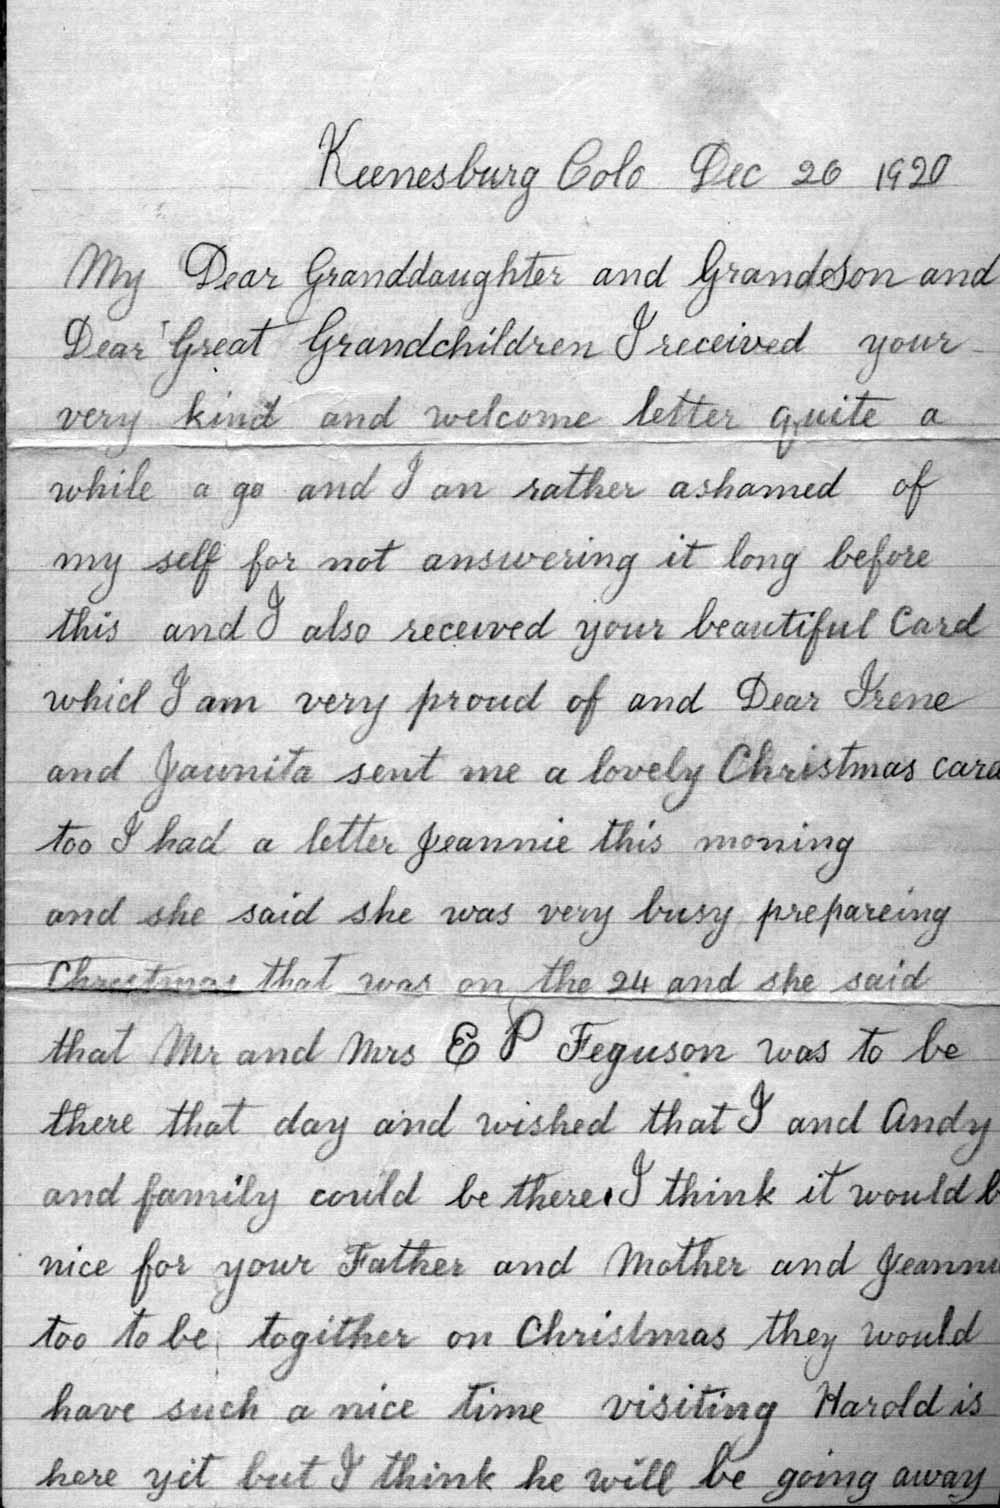 Keenesburg Colo Dec 26 1920
My Dear Granddaughter and Grandson and
Dear Great Grandchildren I received your
very kind and welcome letter quite a
while a go and I an rather ashamed of
my self for not answering it long before
this and I also received your beautiful Card
whicl I am very proud of and Dear Irene
and Jaunita sent me a lovely Christmas card
too I had a letter Jeannie this moning
and she said she was very busy prepareing
Christmas that was on the 24 and she said
that Mr and Mrs E P Feguson was to be
there that day and wished that I and Andy
and family could be there. I think it would b
nice for your Father and Mother and Jeannie
too to be togither on Christmas they would
have such a nice time visiting Harold is
here yit but I think he will be going away